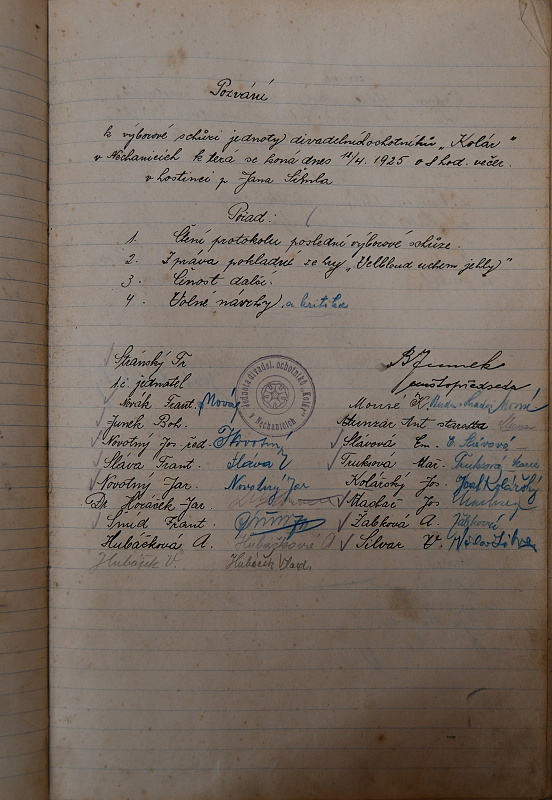 Pozvání
k výborové schůzi jednoty divadelních ochotníků „Kolár"
v Nechanicích která se koná dnes 14/4. 1925 o 8 hod. večer.
v hostinci p. Jana
Pořad:
1. Čtení protokolu poslední výborové schůze.
2. Zpráva pokladní ze hry „Velbloud uchem jehly"
3. Činost další.
4. Volné návrhy a kritika
Stránský Fr
t. č. jednatel
B Junek
místopředseda
Jednota divadel. ochotníků „Kolár" v Nechanicích
Novák Frant. Novák
Junek Boh.
Novotný Jos řed. Novotný
Sláva Frant. Sláva
Novotný Jar. Novotný Jar
Dr. Horáček Jar.
Šmíd Frant.
Hubáčková A. Hubáčková A
Hubáček V. Hubáček Vlad.
Ant starosta
Slavová Em. E. Slávová
Truksová Mar. Truksová
Kolářský Jos. Josef Kolářský
Machač Jos
Žabková A. Žabková
Silvar V.